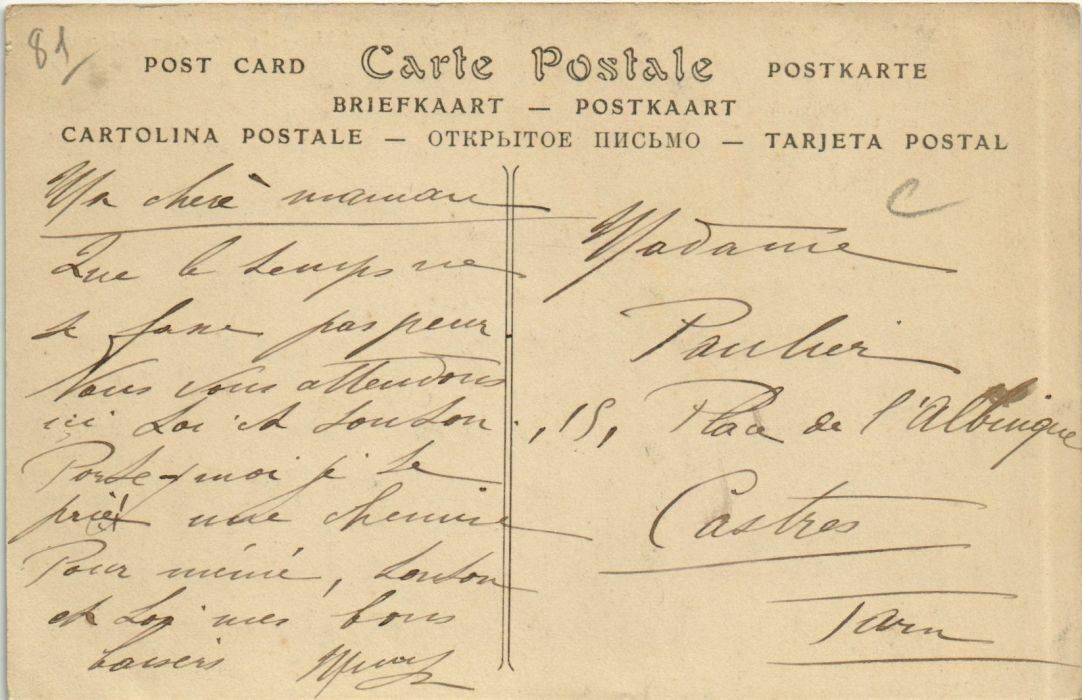 81
POST CARD Carte Postale POSTKARTE
BRIEFKAART — POSTKAART
CARTOLINA POSTALE — ОТКРЫТОЕ ПИСЬМО — TARJETA POSTAL
Ma chère maman
Que le temps ne
te fane pas peur
Nous vous attendons
ici toi et tonton.
Porte-moi je te
prie une chemise
Pour mémé, tonton
et toi mes bons
baisers
C
Madame
Paulier
15, Place de l'Albinque
Castres
Tarn